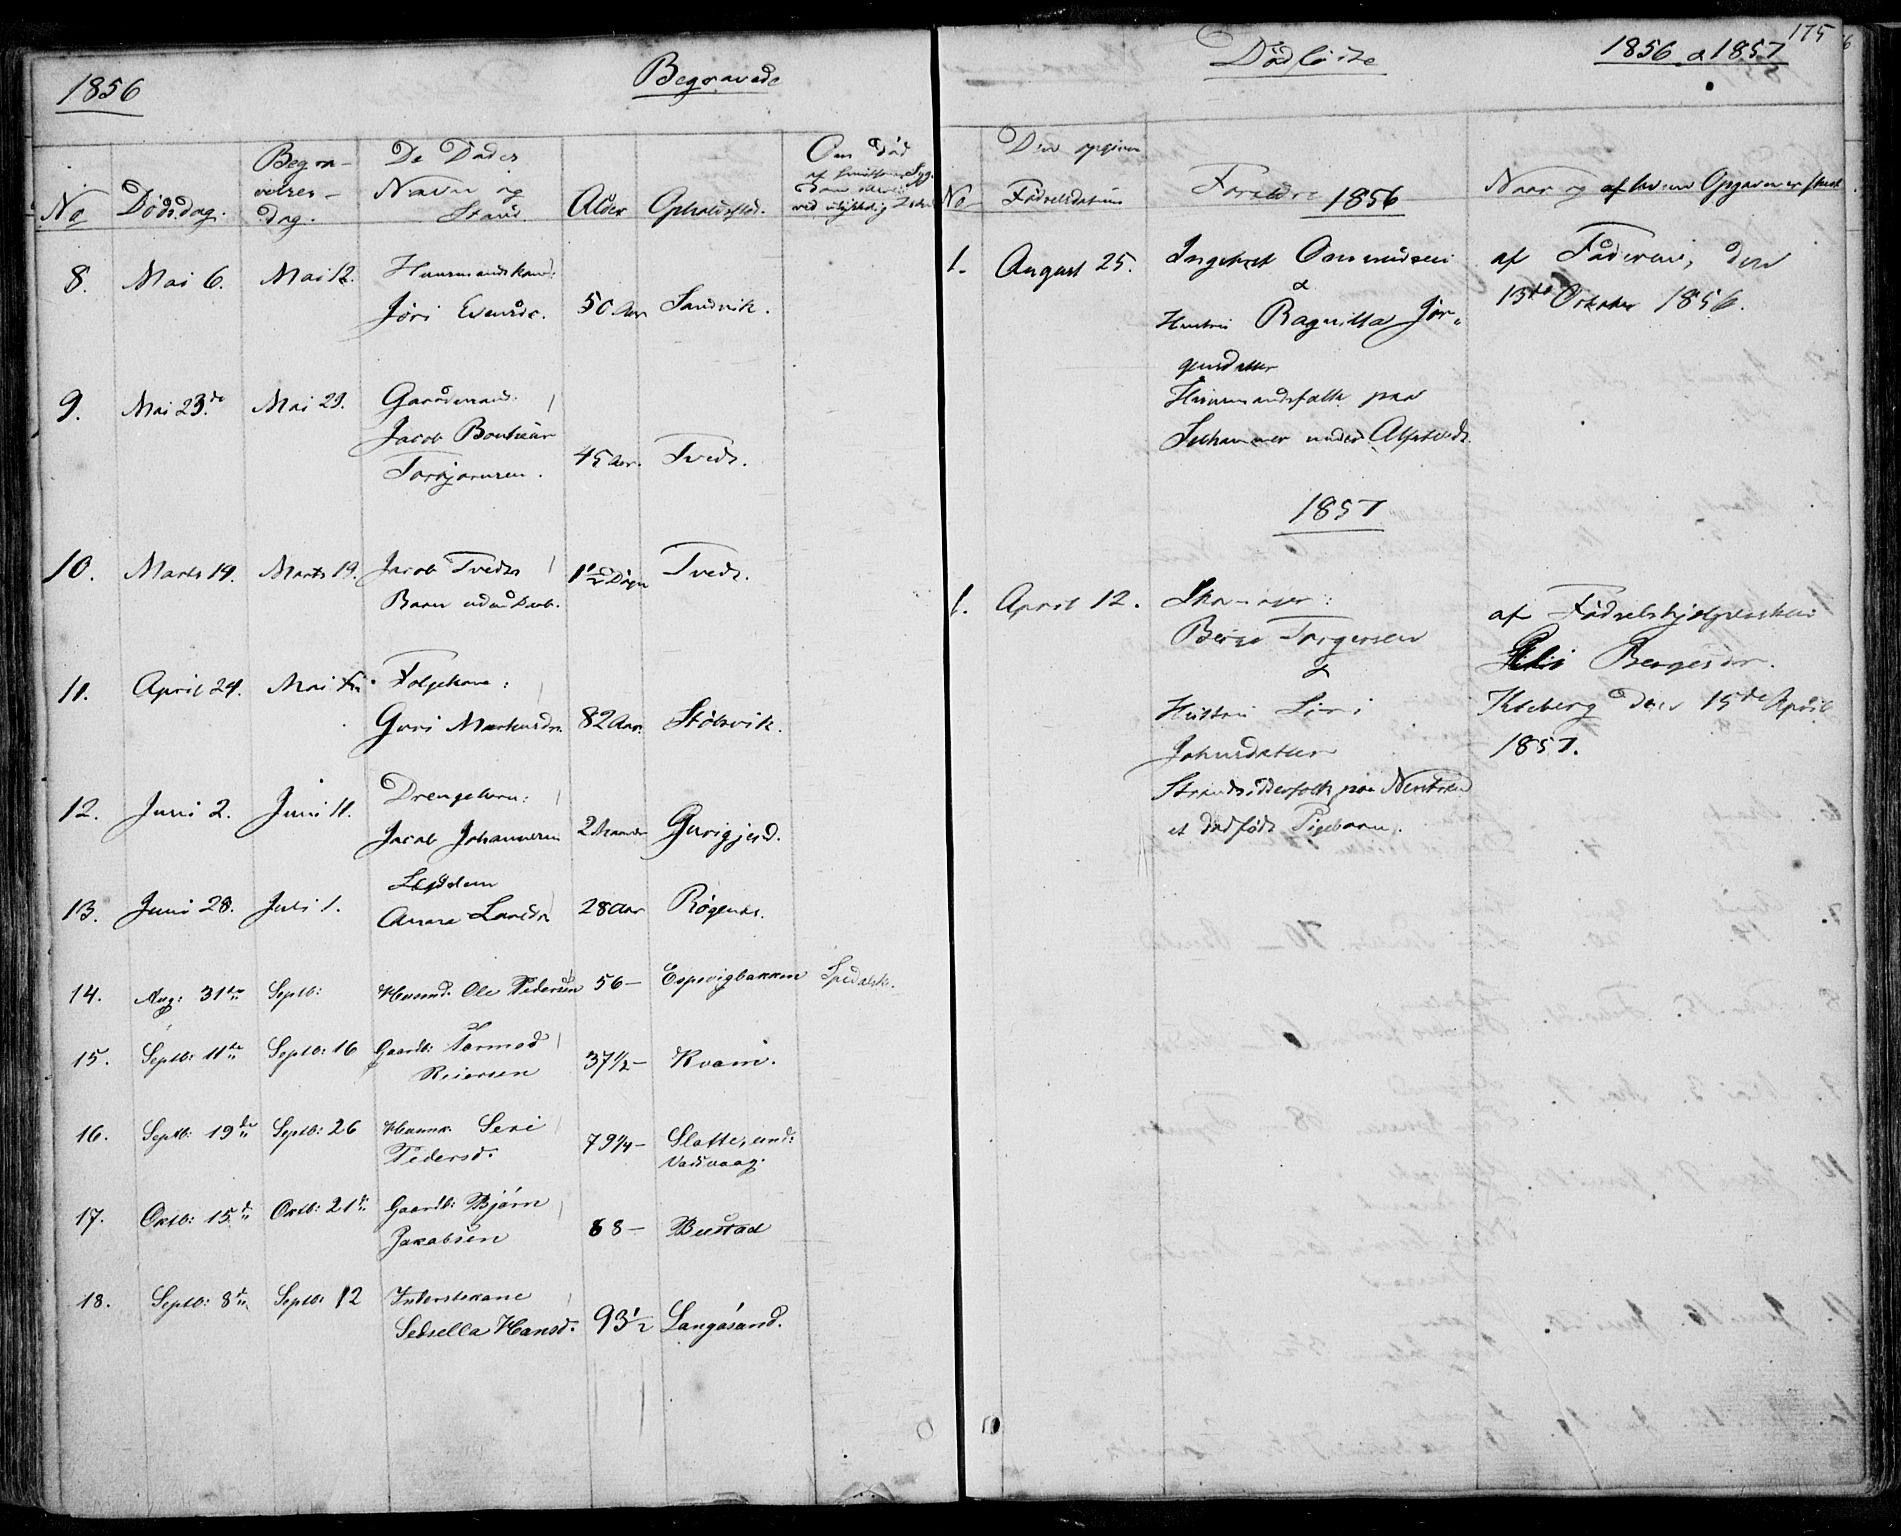 1856
Begravede
No
Dødsdag.
Begra-
velses-
dag.
De Dødes
Navn og
Stand.
Alder
Opholdssted.
Om død
8.
Mai 6.
Mai 12.
Huusmandskone:
Jøri Evensdr.
50 Aar
Sandvik.
9.
Mai 23.de
Mai 29.
Gaardmand:
Jacob Bonheur
Torbjørnsen.
45 Aar.
Tvedt.
10.
Marts 19.
Marts 19.
Jacob Tvedts
Barn uden Daab.
1½ Døgn
Tvedt.
11.
April 24.
Mai
Folgekone:
Guri Markusdr.
82 Aar.
Stølsvik.
12.
Juni 2.
Juni 11.
Drengebarn:
Jacob Johannesen
2
Gurigjerd.
13.
Juni 28.
Juli 1.
Anna Larsdr
28 Aar
Røgenæs.
14.
Aug: 31te
Septb:
Huusmd. Ole Pedersen
56 —
Espevigbakken
Spedalsk.
15.
Septb: 11te
Septb: 16
Gaardb: Tormod
Reiersen
37½ —
Kvam.
16.
Septb: 19de
Septb: 26
Seri
Pedersd.
79¼ —
Slatte, und:
Vadsvaag.
17.
Oktb: 15d
Oktb: 21d
Gaardb: Bjørn
Jakobsen
68 —
Bustad
18.
Septb: 8d
Septb: 12
Inderstekone
Sedsella Hansd.
93½
Langøsund.
175
Dødfødte
1856 & 1857
No
Den opgivne
Fødselsdatum
Forældre
Naar og af hvem Opgaven er skeet
1856
1.
August 25.
Ingebret Ommundsen
&
Hustru Ragnilla Jør-
gensdatter
Huusmandsfolk paa
af Faderen, den
13de October 1856.
1857
1.
April 12.
Børge Torgersen
&
Hustru Siri
Johnsdatter
Strandsidderfolk paa
et dødfødt Pigebarn.
af Fødselshjelpersken
Bergesdr.
Kleberg den 15de April
1857.